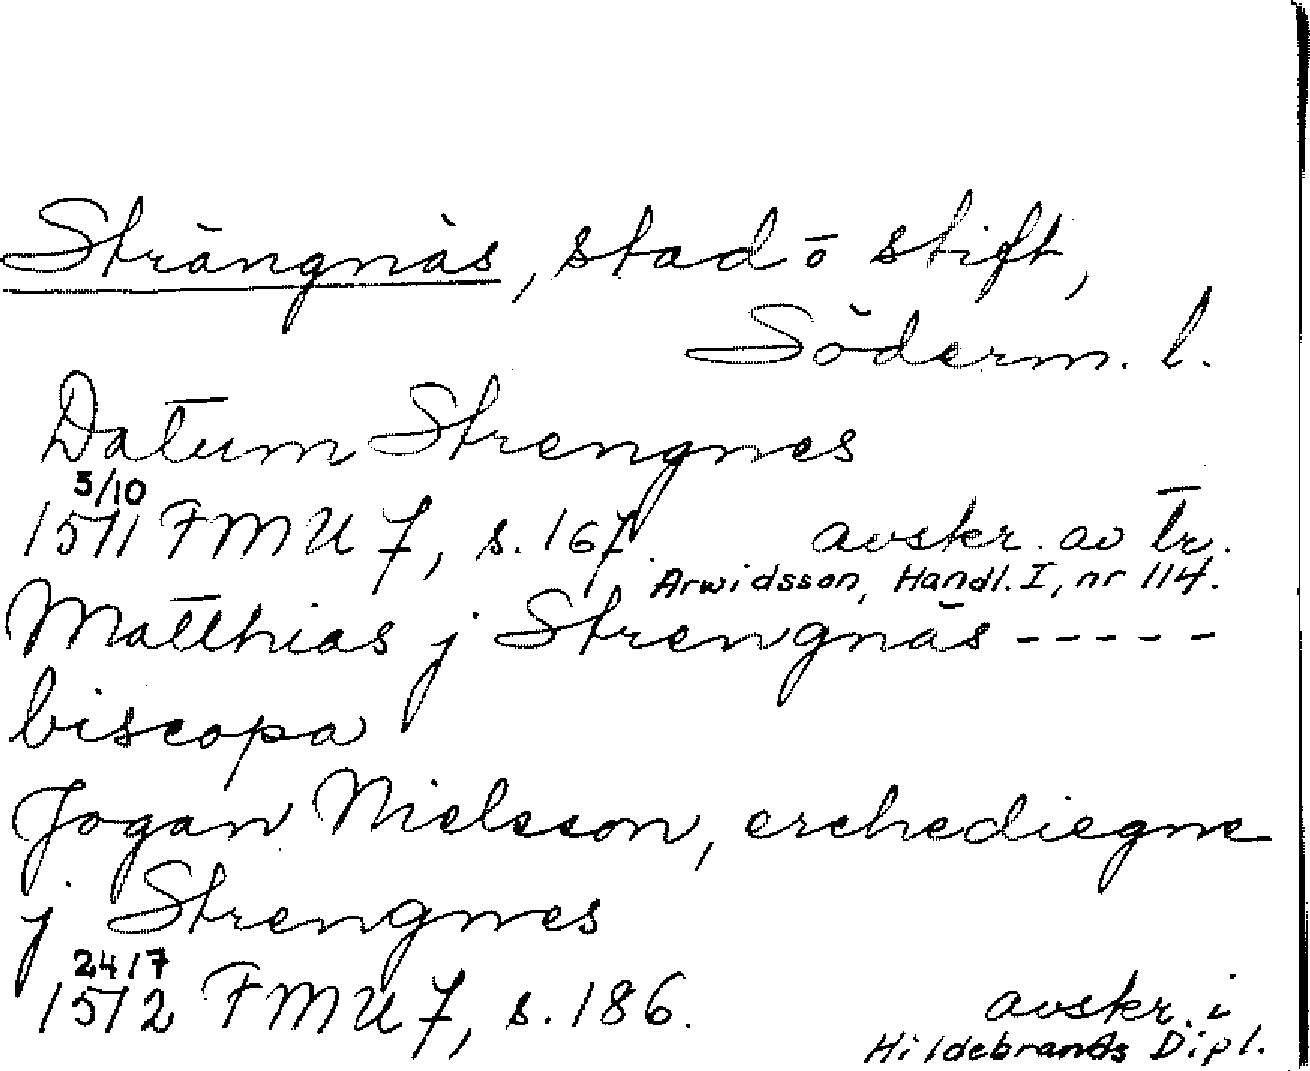 Strängnäs, stad o stift,
Söderm. l.
Datum Strengnes
3/10
1511 FMU 7, s. 167. avskr. av tr.
Arwidsson, Handl. I, nr 114.
Matthias j Strengnäs -----
biscopa
Jogan Nielsson, erchediegne
j Strengnes
24/7
1512 FMU 7, s. 186. avskr. i
Hildebrands Dipl.